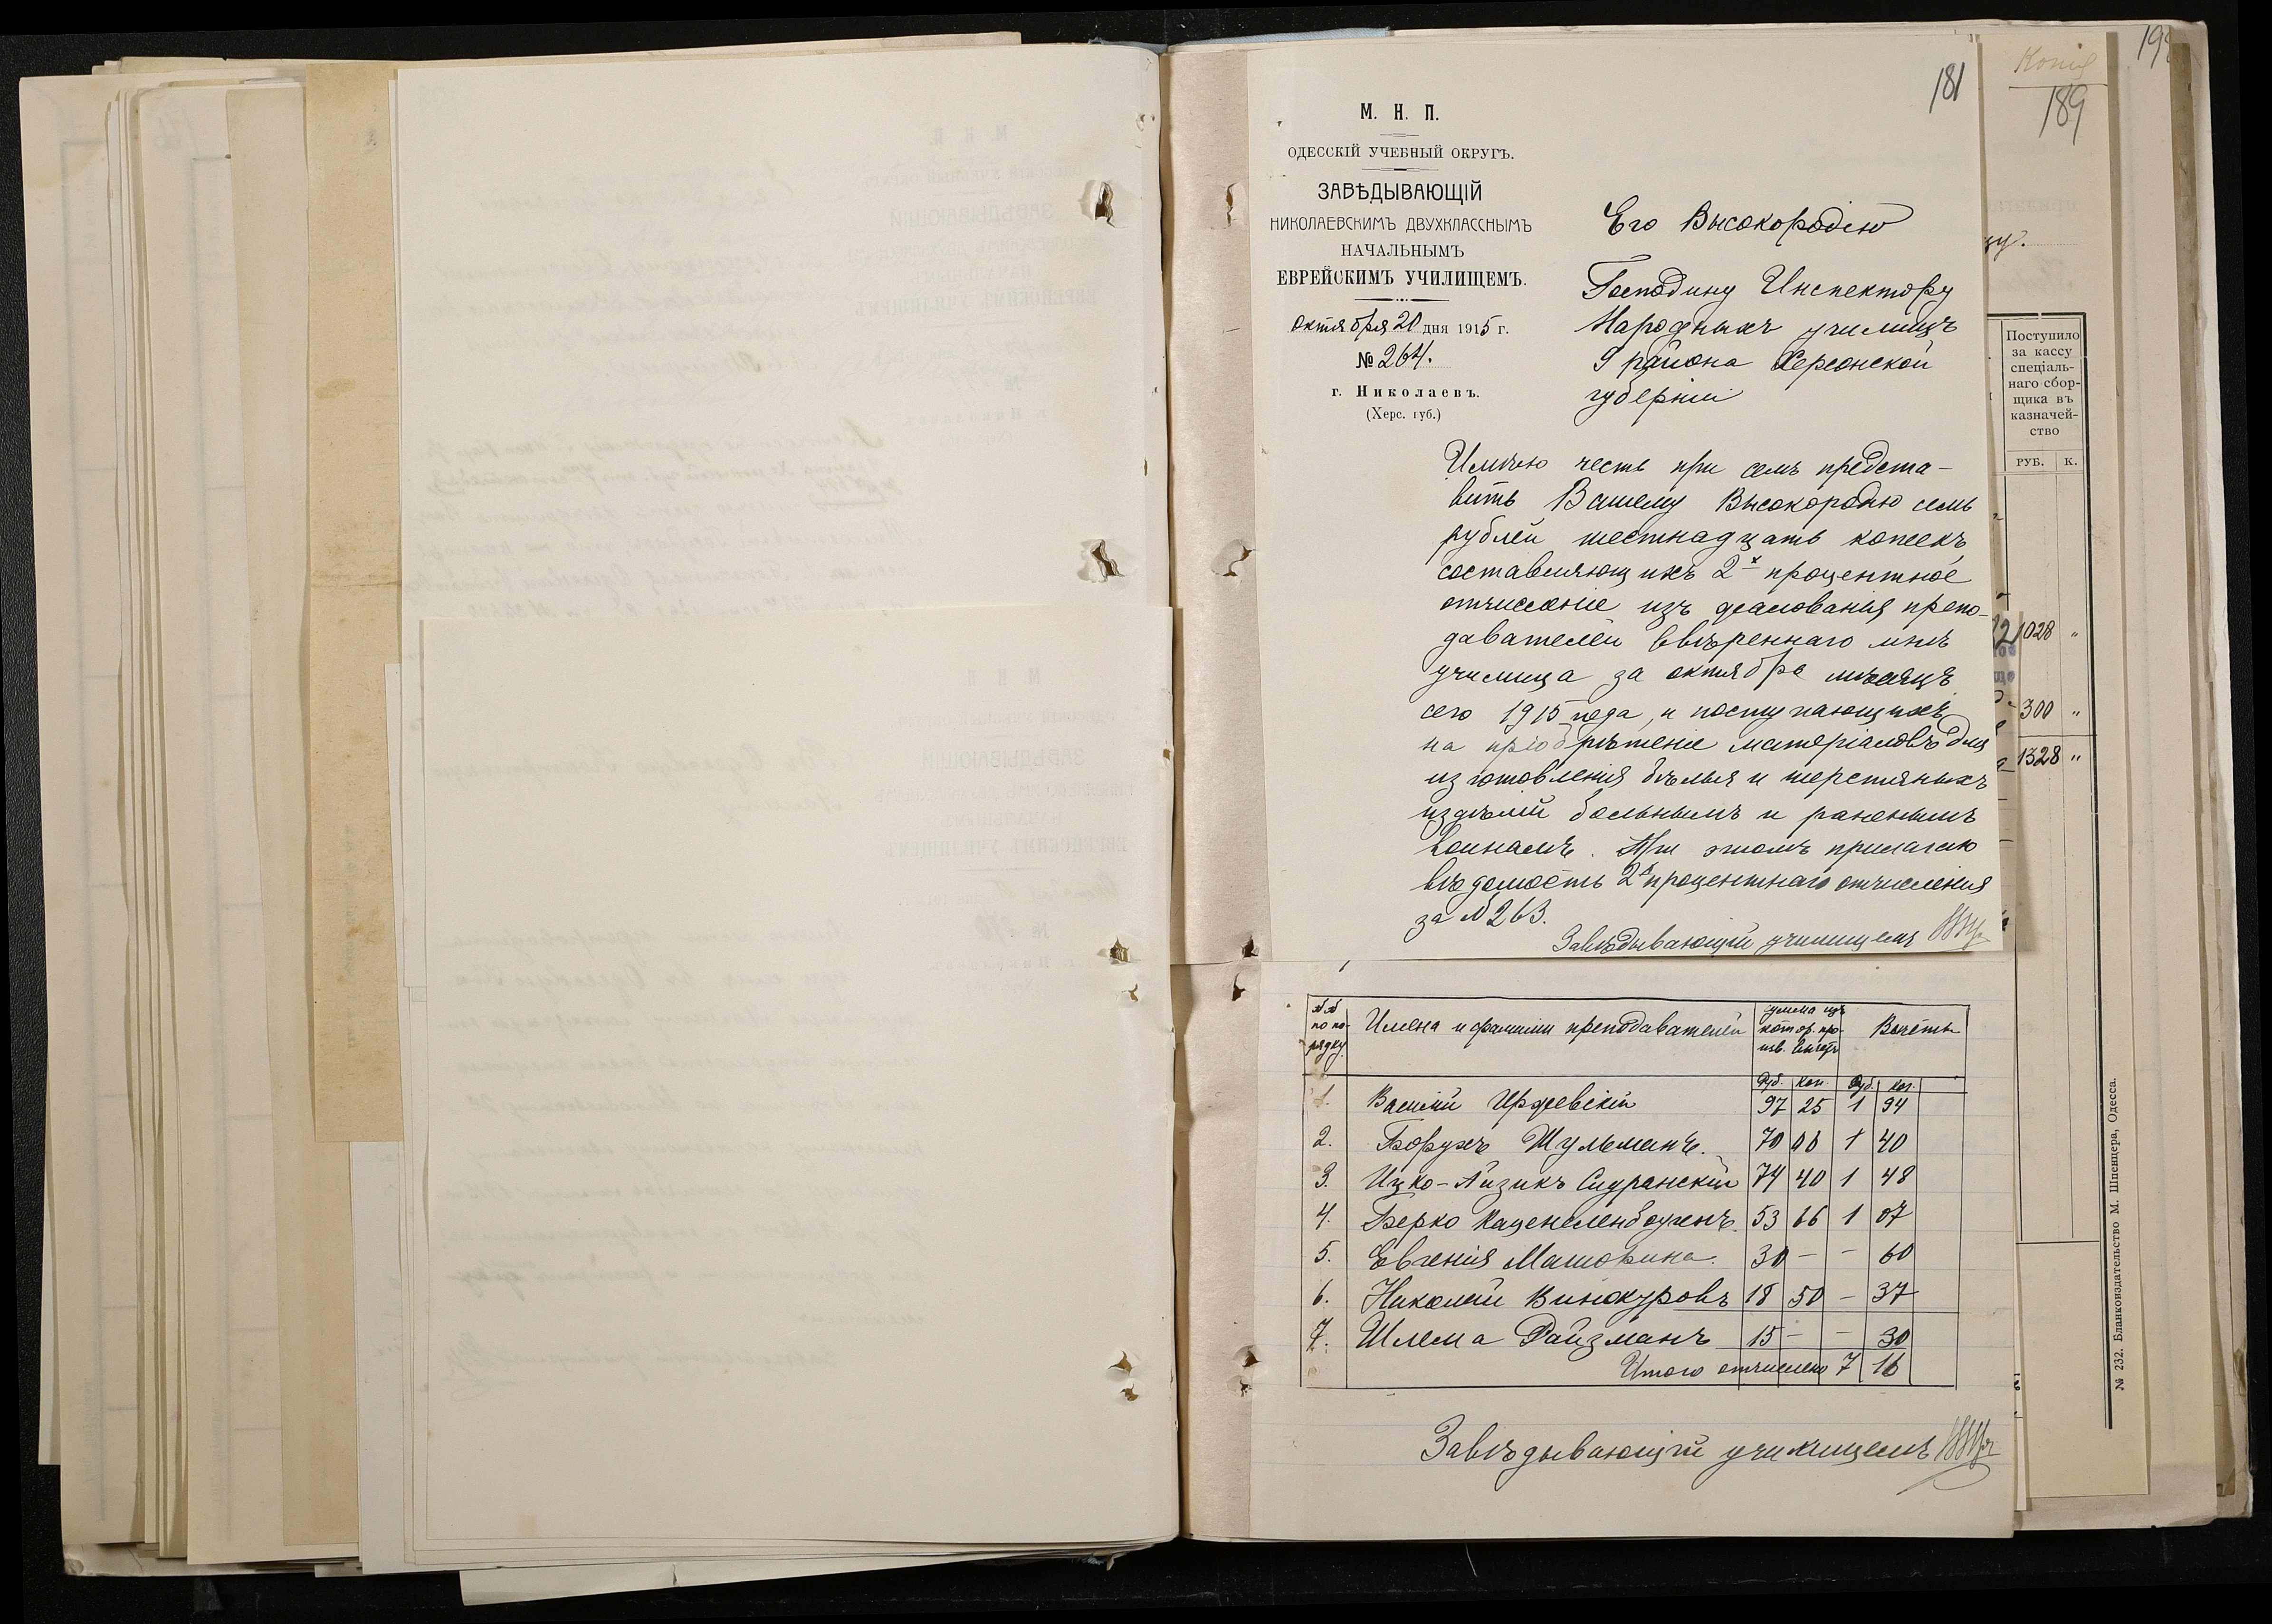 181
М. Н. П.
ОДЕССКІЙ УЧЕБНЫЙ ОКРУГЪ.
ЗАВѢДЫВАЮЩІЙ
НИКОЛАЕВСКИМЪ ДВУХКЛАССНЫМЪ
НАЧАЛЬНЫМЪ
ЕВРЕЙСКИМЪ УЧИЛИЩЕМЪ.
октября 20 дня 1915 г.
№ 264.
г. Николаевъ.
(Херс. губ.)
Его Высокородію
Господину Инспектору
Народныхъ училищъ
9 района Херсонской
губерніи
Имѣю честь при семъ предста-
вить Вашему Высокородію семь
рублей шестнадцать копеекъ
составляющихъ 2х процентное
отчисленіе изъ жалованія препо-
давателей ввѣреннаго мнѣ
училища за октябрь мѣсяцъ
сего 1915 года, и поступающихъ
на пріобрѣтеніе матеріаловъ для
изготовленія бѣлья и шерстяныхъ
издѣлій больнымъ и раненымъ
воинамъ. При этомъ прилагаю
вѣдомость 2х процентнаго отчисленія
за № 263.
Завѣдывающій училищемъ
№№ по по-рядку | Имена и фамиліи преподавателей | Сумма изъ котор. про-изв. вычетъ | Вычеты
Руб. | Коп. | Руб. | Коп.
1. Василій 97 25 1 94
2. Борухъ Шульманъ. 70 06 1 40
3. Ицко-Айзикъ Сидранскій 74 40 1 48
4. Берко Каценеленбогенъ. 53 66 1 07
5. Евгенія Машорина. 30 — — 60
6. Николай Винокуровъ 18 50 — 37
7. Шлема Файзманъ 15 — — 30
Итого отчислено 7 16
Завѣдывающій училищемъ
189
Поступило
за кассу
спеціаль-
наго сбор-
щика въ
казначей-
ство
РУБ. К.
1028 "
300 "
1328 "
№ 232. Бланкоиздательство М. Шпенцера, Одесса.